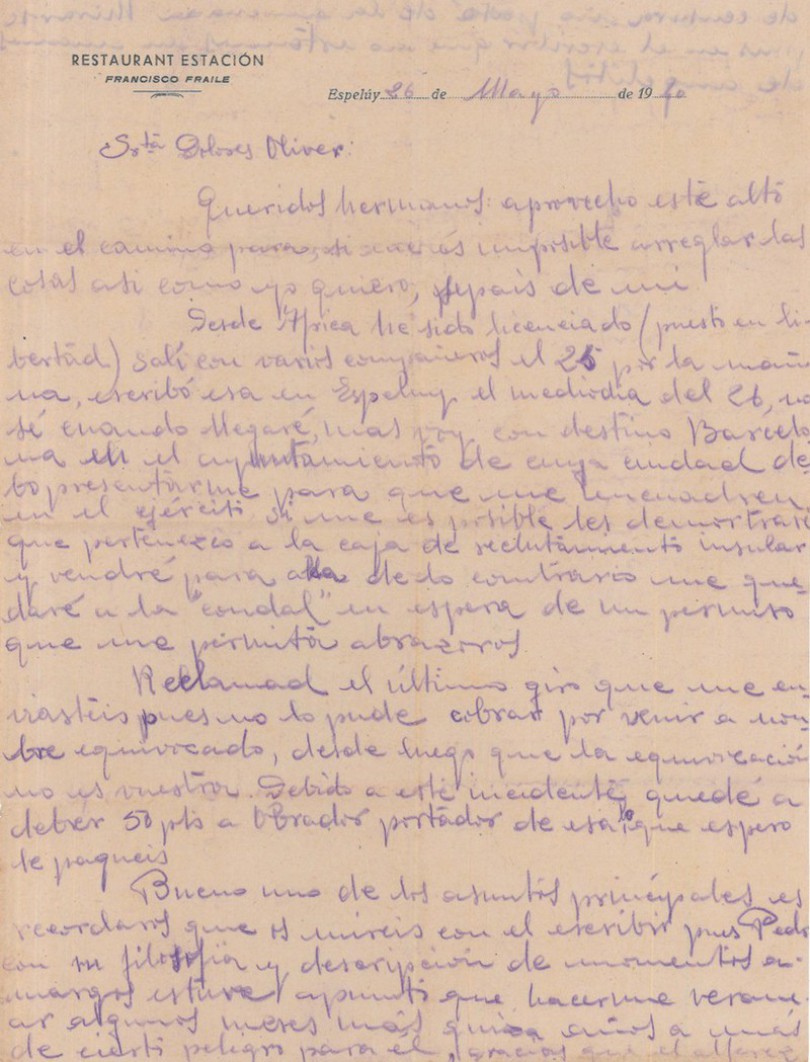 RESTAURANT ESTACIÓN
FRANCISCO FRAILE
Espelúy 26 de Mayo de 1940
Srtã Dolores Oliver:
Queridos hermanos: aprovecho este alto
en el camino para, si imposible arreglar las
cosas asi como yo quiero, sepais de mi
Desde he sido licenciado (puesto en li-
bertad) salí con varios compañeros el 25 por la maña
na, escribó esa en Espeluy el mediodia del 26, no
sé cuando llegaré, mas voy con destino Barcelo
na en el ayuntamiento de cuya ciudad de-
bo presentarme para que me encuadren
en el ejército si me es posible les demostraré
que pertenezco a la caja de reclutamiento insular
y vendré para alla de lo contrario me que-
daré a la "condal" en espera de un permiso
que me permita abrazaros.
Reclamad el último giro que me en-
viasteis pues no lo pude cobrar por venir a nom-
bre equivocado, desde luego que la equivocación
no es vuestra. Debido a este incidente, quedé a
deber 50 pts a Obrador portador de esa, que espero
le pagueis
Bueno uno de los asuntos principales es
recordaros que os mireis con el escribir pues Pedro
con su filosofia y descripción de momentos a-
margos estuvo apunto que hacerme verane-
ar algunos meses más quiza años a más
de cierto peligro para el, gracias que el